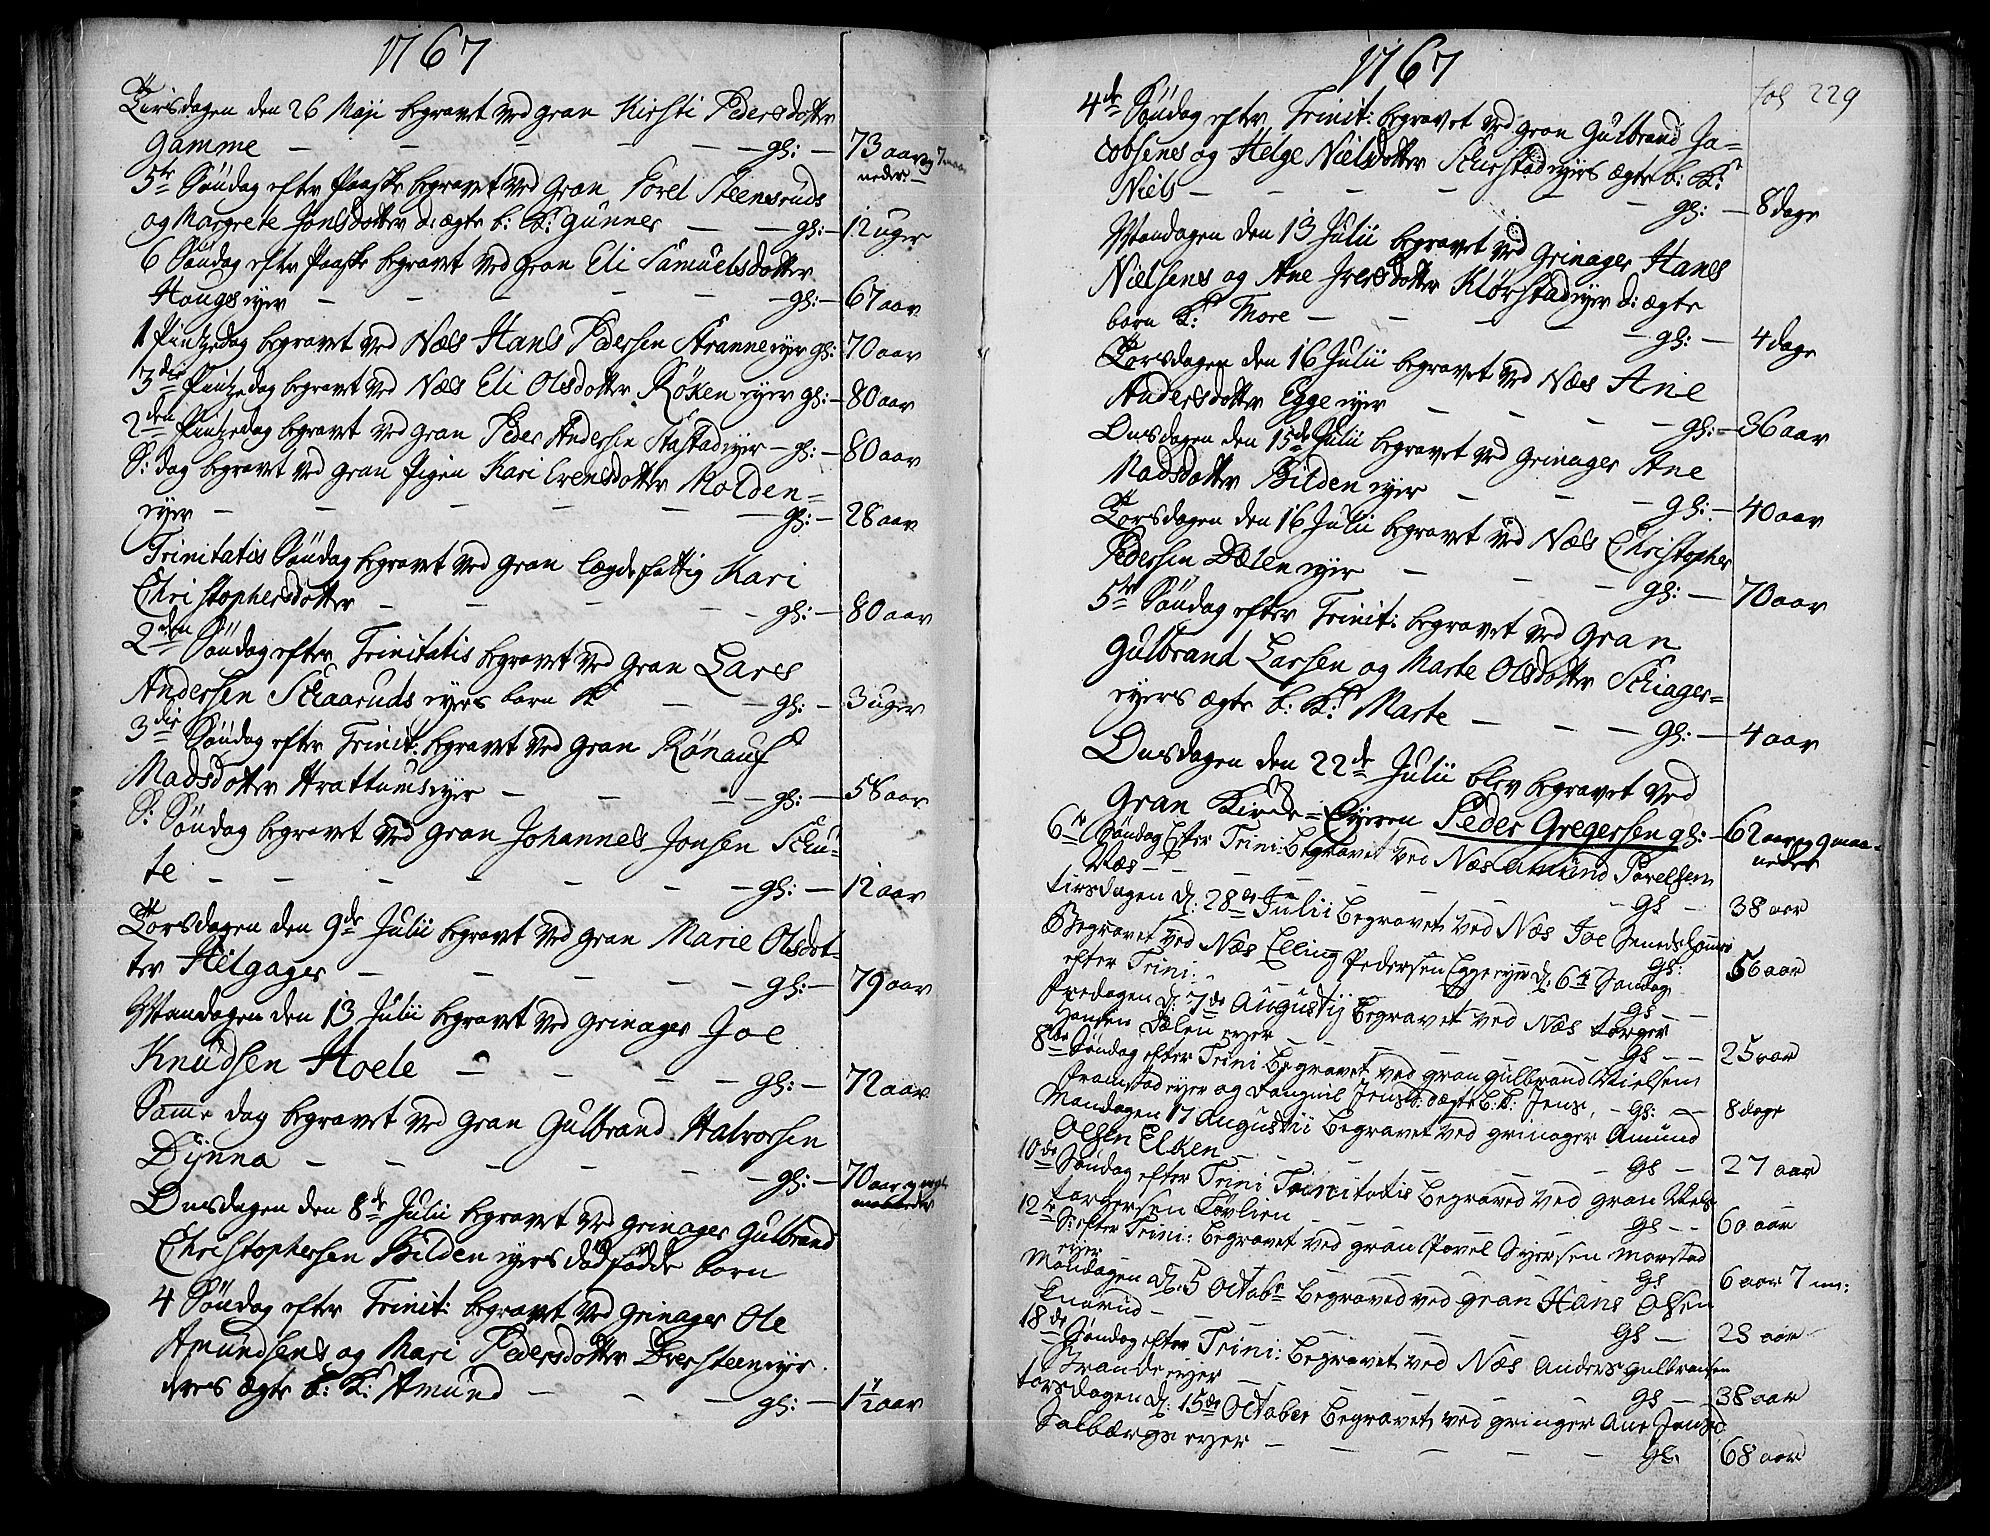 1767
Tirsdagen den 26 Maji begravet ved Gran Kirsti Pedersdotter
Gamme — — — — gl: — 73 aar og 7 maa
neder
5te Søndag efter Paaske begravet ved Gran Povel Steensruds
og Margrete Jonsdotter d: ægte b: K: Gunner — — gl: — 12 uger
6 Søndag efter Paaske begravet ved Gran Eli Samuelsdotter
Hougs eyer — — — — gl: — 67 aar
1 Pintzedag begravet ved Næs Hans Pedersen Stranne eyer gl: — 70 aar
3die Pintzedag begravet ved Næs Eli Olsdotter Røken eyer gl: — 80 aar
2den Pintzedag begravet ved Gran Peder Andersen Stastad eyer — gl: — 80 aar
S: dag begravet ved Gran Pigen Kari Evensdotter Molden=
eyer — — — — gl: — 28 aar
Trinitatis Søndag begravet ved Gran lægdsfattig Kari
Christophersdotter — — — gl: — 80 aar
2den Søndag efter Trinitatis begravet ved Gran Lars
Andersen Schaaruds eyers barn K — — gl: — 3 uger
3die Søndag efter Trinit: begravet ved Gran Rønauf
Madsdotter Hrattums eyer — — — gl: — 58 aar
S: Søndag begravet ved Gran Johannes Jonsen Schu=
te — — — — gl: — 12 aar
Torsdagen den 9de Julii begravet ved Gran Marie Olsdot=
ter Helgager — — — gl: — 79 aar
Mandagen den 13 Julii begravet ved Grinager Joe
Knudsen Hoele — — — gl: — 72 aar
Samme dag begravet ved Gran Gulbrand Halvorsen
Dynna — — — gl: — 70 aar
Onsdagen den 8de Julii begravet ved Grinager Gulbrand
Christophersen Bilden eyers dødfødde barn
4 Søndag efter Trinit: begravet ved Grinager Ole
Amundsens og Mari Pedersdotter Dversteen eyer
deres ægte b: K: Amund — — gl: — 1½ aar
1767
fol 229
4de Søndag efter Trinit: begravet ved Gran Gulbrand Ja=
cobsens og Helge Nielsdotter Schirstad eyers ægte b: K:
Niels — — — — gl: — 8 dage
Mandagen den 13 Julii begravet ved Grinager Hans
Nielsens og Ane Iversdotter Klørstad eyer d: ægte
barn K: Thore — — — gl: — 4 dage
Torsdagen den 16 Julii begravet ved Næs Ane
Andersdotter Egge eyer — — — gl: — 36 aar
Onsdagen den 15de Julii begravet ved Grinager Ane
Madsdotter Bilden eyer — — — gl: — 40 aar
Torsdagen den 16 Julii begravet ved Næs Christopher
Pedersen Dælen eyer — — — gl: — 70 aar
5te Søndag efter Trinit: begravet ved Gran
Gulbrand Larsen og Marte Olsdotter Schiager=
eyers ægte b: K: Marte — — — gl: — 4 aar
Onsdagen den 22de Julii blev begravet ved
Gran Kirke= Eyeren Peder Gregersen gl: — 62 aar og 9 maa=
neder
6te Søndag Efter Trini: Begravet ved Næs Amund Povelsen
Næs — — — — gl — 38 aar
tirsdagen d: 28de Julii Begravet ved Næs Joe
Begravet ved Næs Elling Pedersen Egge eyer d: 6te Søndag gl: 56 aar
efter Trini: — — — gl — —
Fredagen d: 7de Augustij Begravet ved Næs torger
Hansen Dælen eyer — — — gl — — 25 aar
8de Søndag efter Trini Begravet ved Gran Gulbrand Nielsens
Framstad eyer og Jensd: d: ægte b: K: Jens, — gl: — 8 dage
Mandagen 17 Augustii Begravet ved Grinager Amund
Olsen Elken — — — gl — 27 aar
10de Søndag efter Trini Trinitatis Begraved ved Gran Niels
torgersen Løvlien — — — gl — — 60 aar
12te S: efter Trini: Begravet ved Gran Povel Syversen Morstad
eyer — — — gl — 6 aar 7 m:
Mandagen d: 5 Octobr Begraved ved Gran Hans Olsen
— — — gl — 28 aar
18de Søndag efter Trini: Begravet ved Næs Anders Gulbransen
Brande eyer — — — gl — 38 aar
torsdagen d: 15de October Begravet ved Gringer Ane Jensd
Solbærgs eyer — — — gl: 68 aar